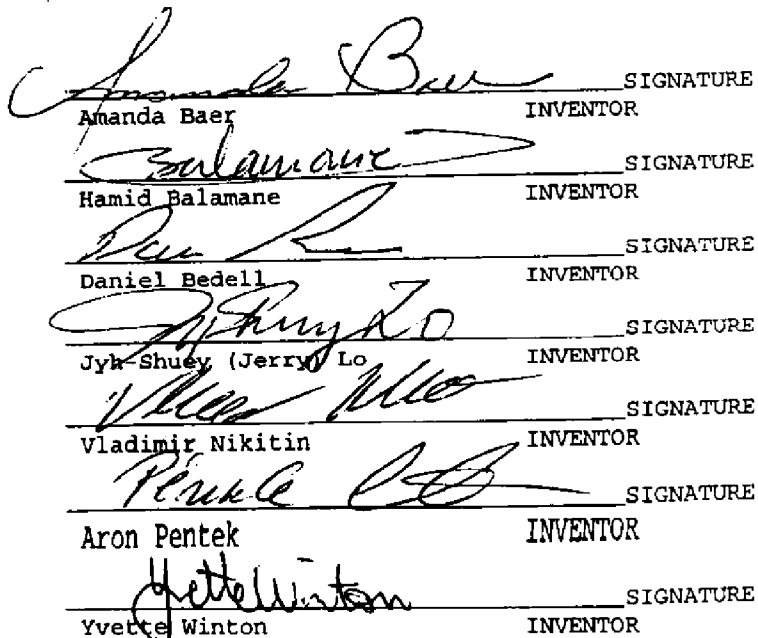 Amanda Baer SIGNATURE
Amanda Baer INVENTOR
Balamane SIGNATURE
Hamid Balamane INVENTOR
SIGNATURE
Daniel Bedell INVENTOR
Jyh Shuey Lo SIGNATURE
Jyh-Shuey (Jerry) Lo INVENTOR
SIGNATURE
Vladimir Nikitin INVENTOR
SIGNATURE
Aron Pentek INVENTOR
Yvette Winton SIGNATURE
Yvette Winton INVENTOR